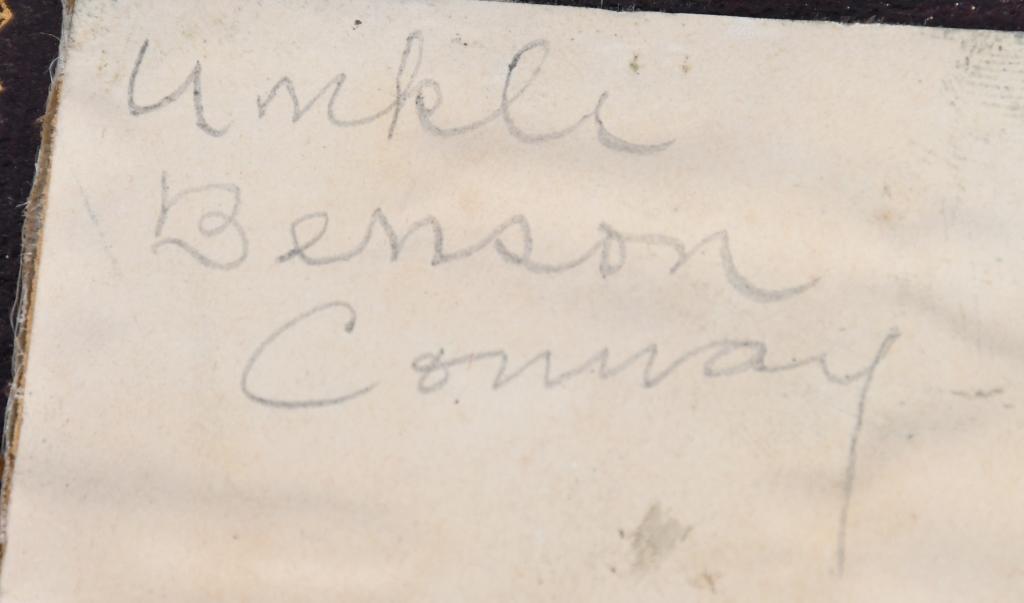 Unkle
Benson
Conway